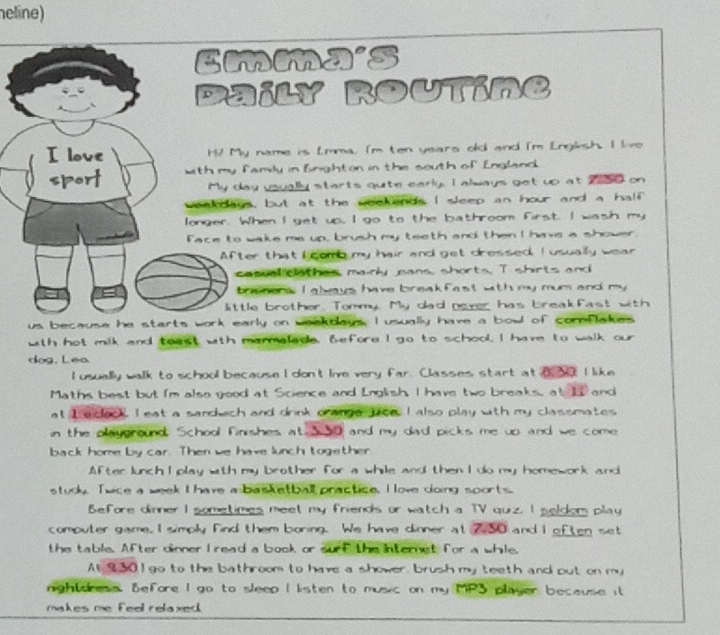 neline)
Emma's
Daily Routine
I love
sport
Hi! My name is Emma. I'm ten years old and I'm English. I live
with my family in Brighton in the south of England.
My day usually starts quite early. I always get up at 7.30 on
weekdays, but at the weekends I sleep an hour and a half
longer. When I get up, I go to the bathroom first. I wash my
face to wake me up, brush my teeth and then I have a shower.
After that I comb my hair and get dressed. I usually wear
casual clothes, mainly jeans, shorts, T shirts and
trainers. I always have breakfast with my mum and my
little brother, Tommy. My dad never has breakfast with
us because he starts work early on weekdays. I usually have a bowl of cornflakes
with hot milk and toast with marmalade. Before I go to school, I have to walk our
dog, Leo.
I usually walk to school because I don't live very far. Classes start at 8.30. I like
Maths best but I'm also good at Science and English. I have two breaks, at 11 and
at 1 o'clock. I eat a sandwich and drink orange juice. I also play with my classmates
in the playground. School finishes at 3.30 and my dad picks me up and we come
back home by car. Then we have lunch together.
After lunch I play with my brother for a while and then I do my homework and
study. Twice a week I have a basketball practice. I love doing sports.
Before dinner I sometimes meet my friends or watch a TV quiz. I seldom play
computer game, I simply find them boring. We have dinner at 7.30 and I often set
the table. After dinner I read a book or surf the Internet for a while.
At 9.30 I go to the bathroom to have a shower, brush my teeth and put on my
nightdress. Before I go to sleep I listen to music on my MP3 player because it
makes me feel relaxed.